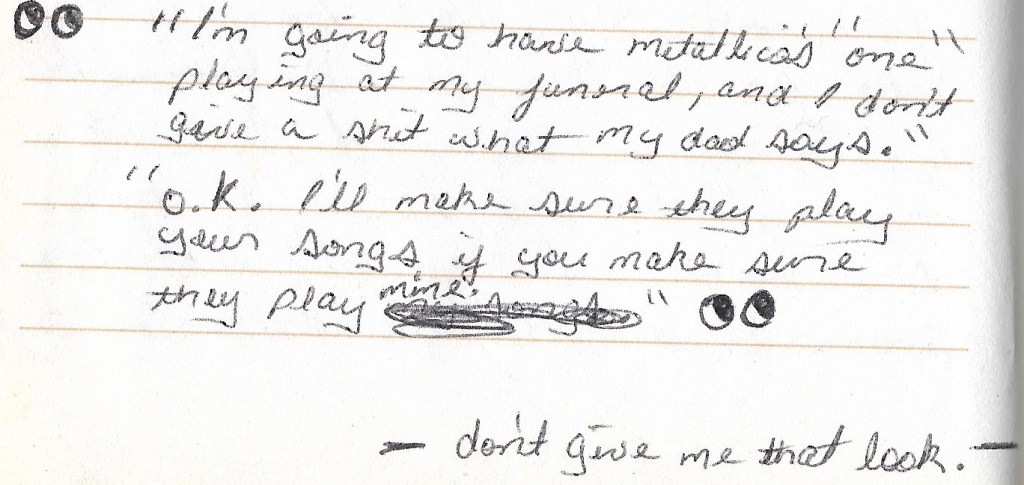 "I'm going to have metallica's "one"
playing at my funeral, and I don't
give a shit what my dad says."
"O.K. I'll make sure they play
your songs if you make sure
they play mine. my songs. "
— don't give me that look. —